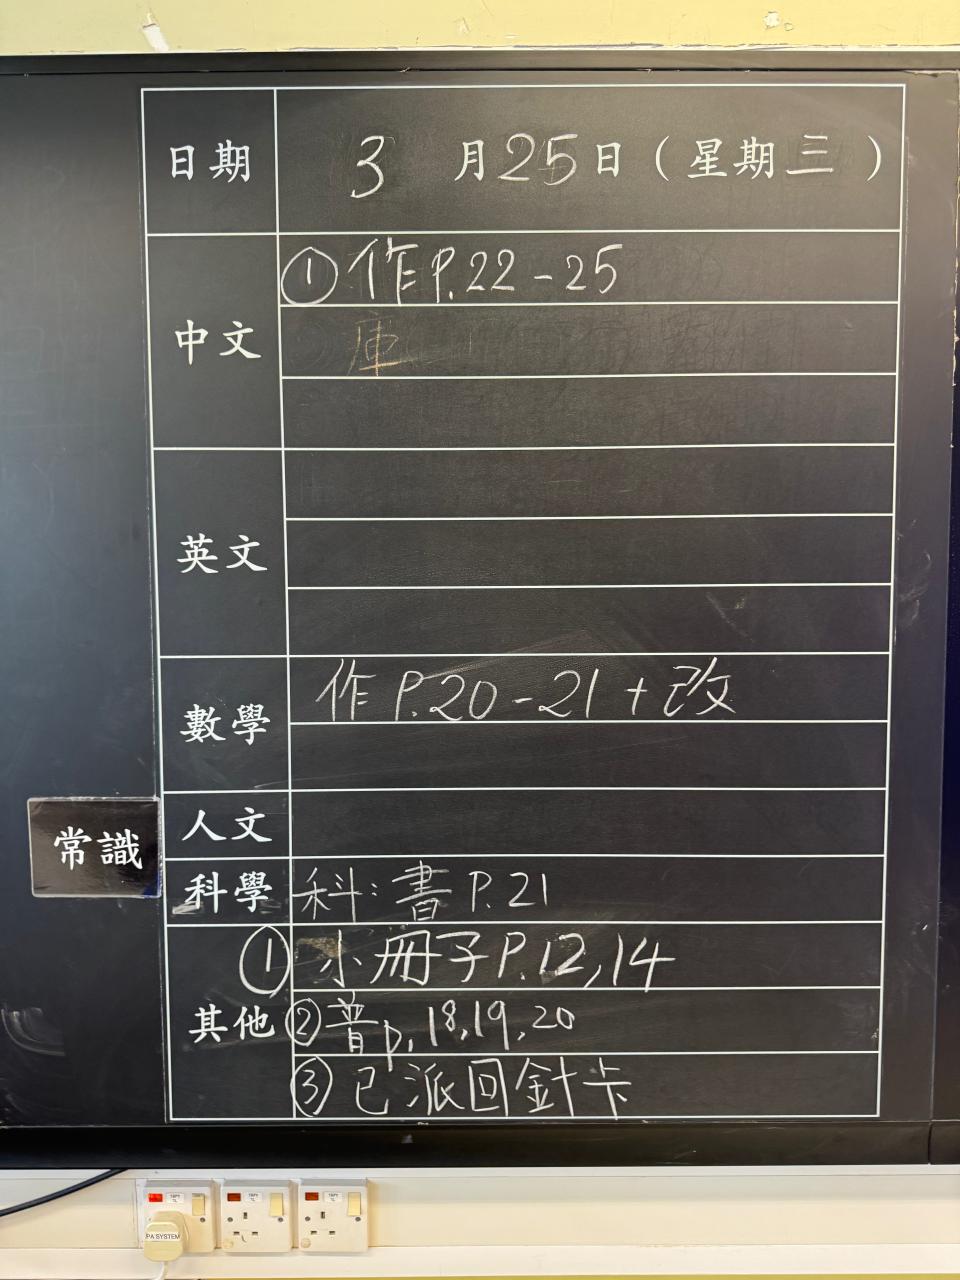 日期 3 月 25 日 ( 星期 三 )
中文
① 作 P.22-25
庫
英文
數學
作 P.20-21 + 改
人文
常識
科學 科: 書 P.21
其他
① 小冊子 P.12,14
② 普 p. 18,19,20
③ 已派回針卡
PA SYSTEM